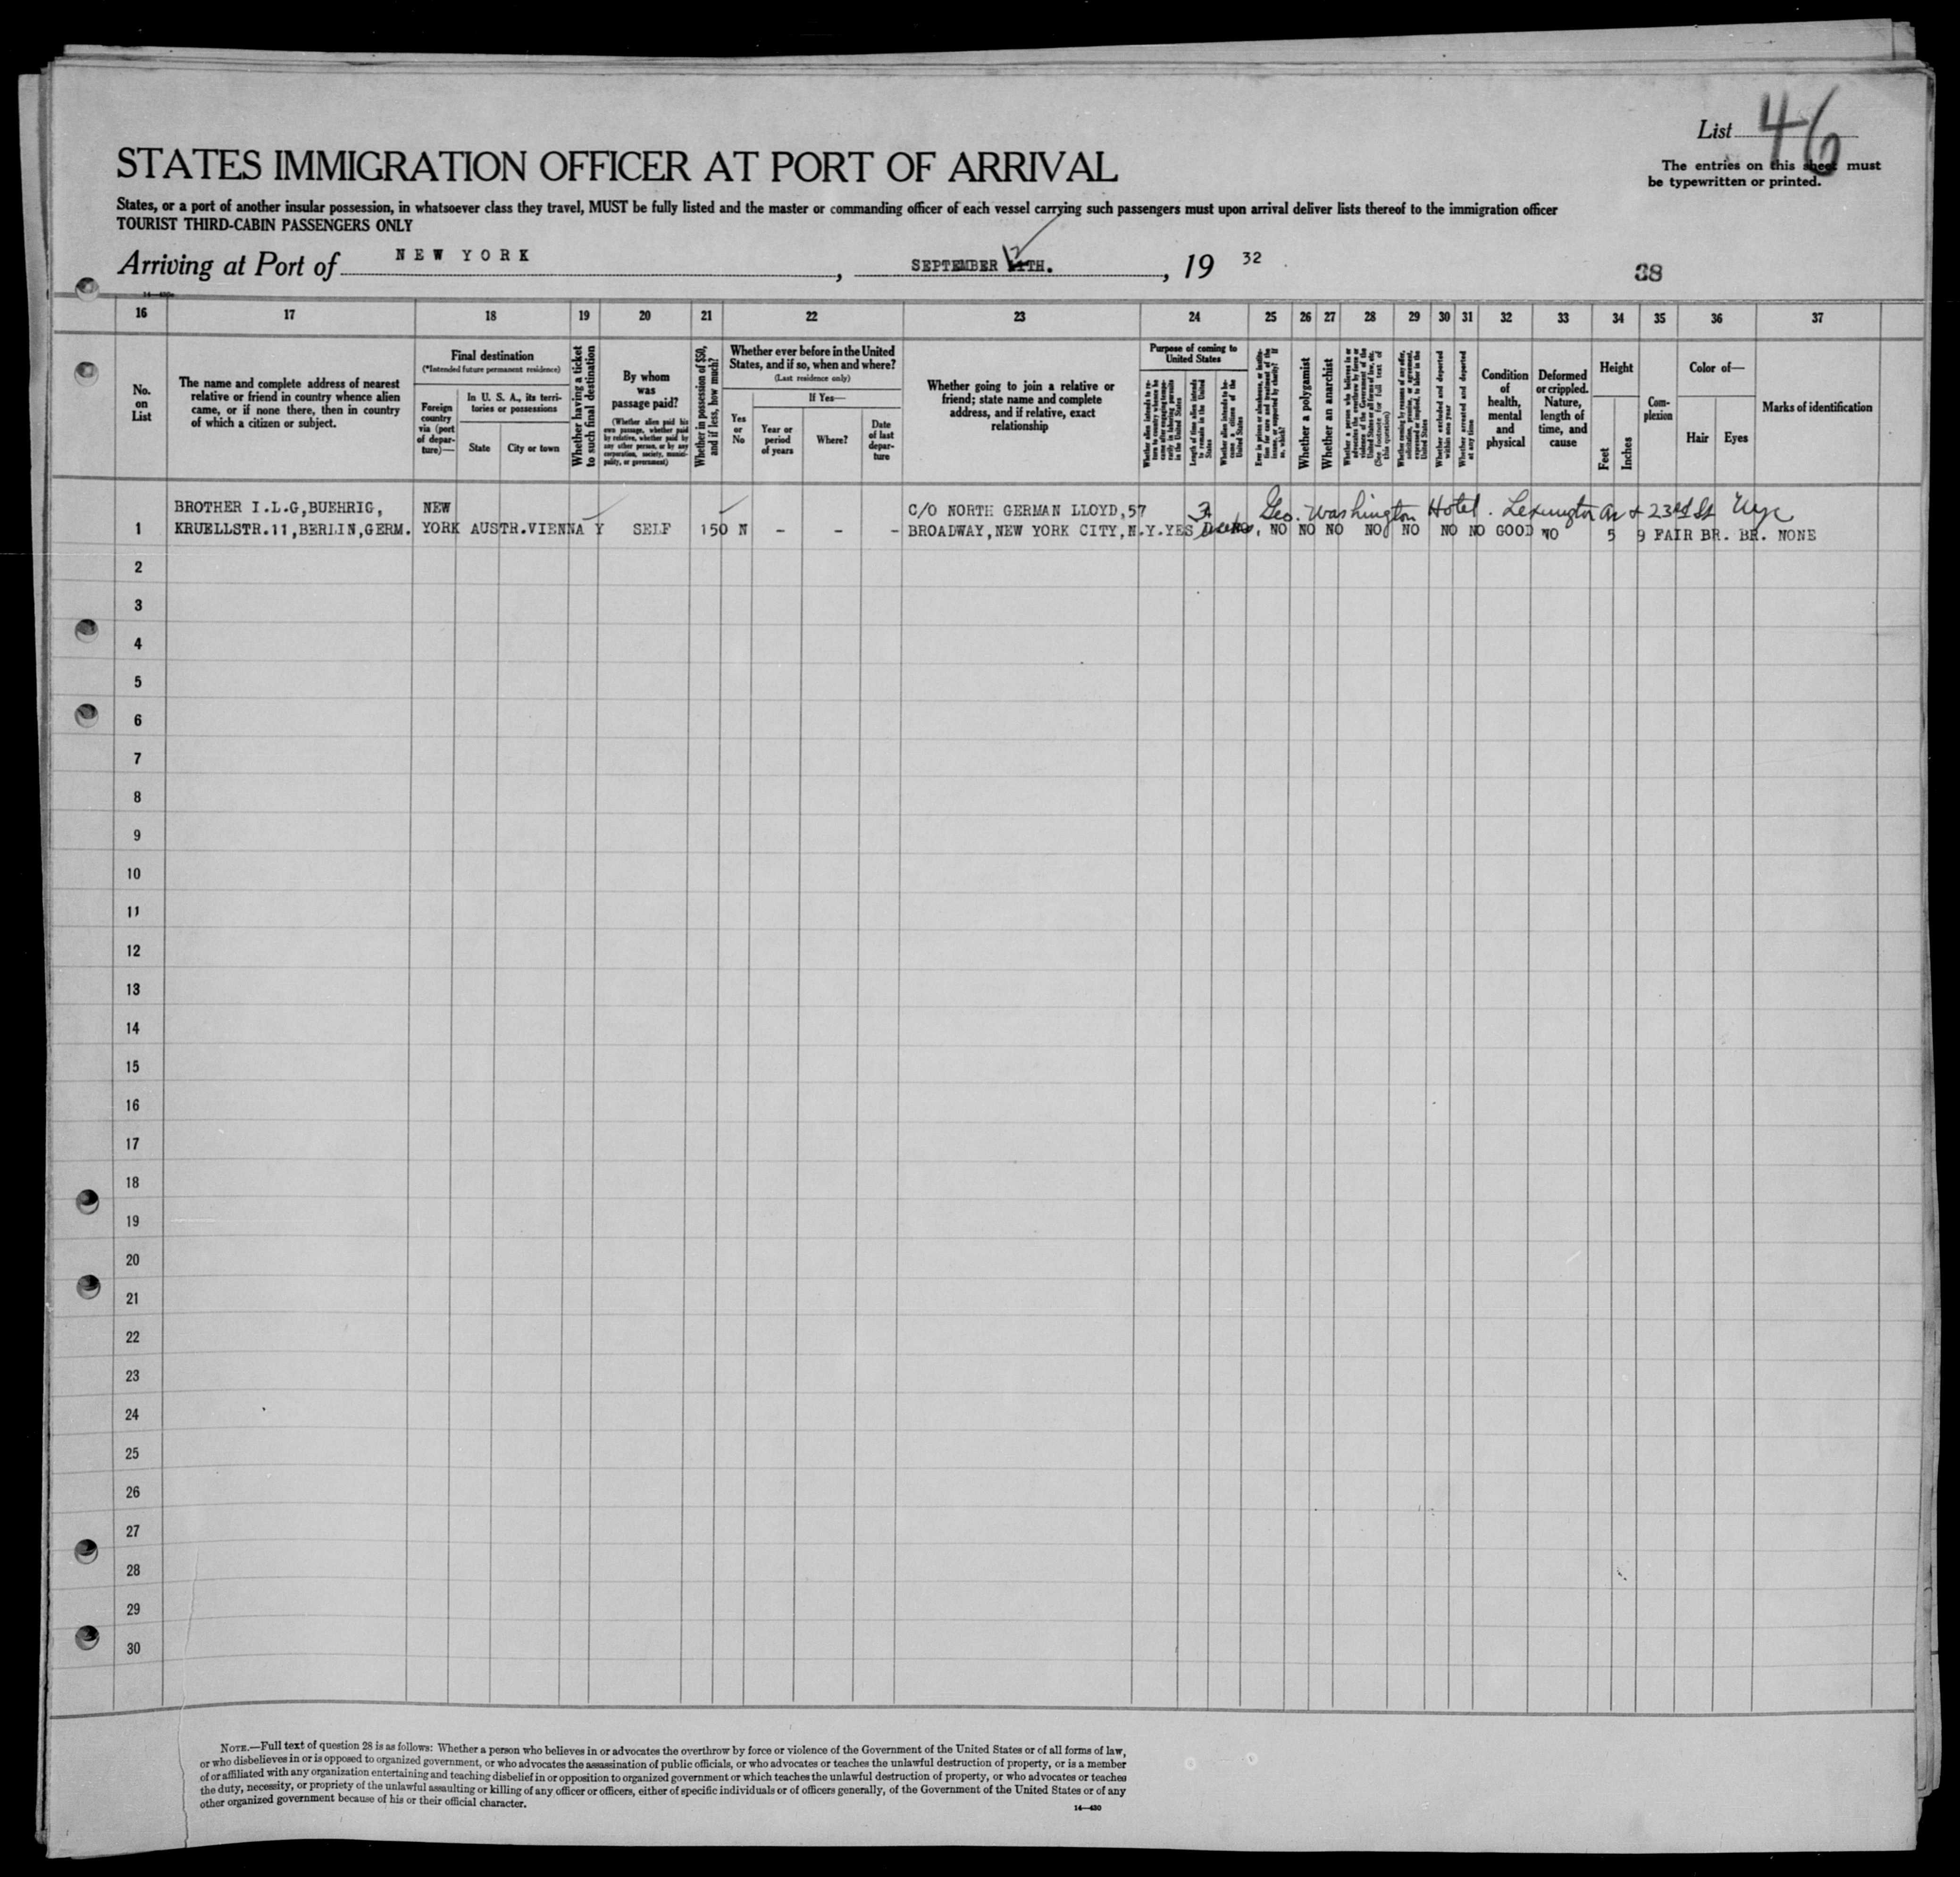 List 46
The entries on this sheet must
be typewritten or printed.
STATES IMMIGRATION OFFICER AT PORT OF ARRIVAL
States, or a port of another insular possession, in whatsoever class they travel, MUST be fully listed and the master or commanding officer of each vessel carrying such passengers must upon arrival deliver lists thereof to the immigration officer
TOURIST THIRD-CABIN PASSENGERS ONLY
Arriving at Port of NEW YORK, SEPTEMBER 12 TH., 19 32
38
16 17 18 19 20 21 22 23 24 25 26 27 28 29 30 31 32 33 34 35 36 37
No.
on
List
The name and complete address of nearest
relative or friend in country whence alien
came, or if none there, then in country
of which a citizen or subject.
Final destination
(*Intended future permanent residence)
Foreign
country
via (port
of depar-
ture)—
In U. S. A., its terri-
tories or possessions
State
City or town
Whether having a ticket
to such final destination
By whom
was
passage paid?
(Whether alien paid his
own passage, whether paid
by relative, whether paid by
any other person, or by any
corporation, society, munici-
pality, or government)
Whether in possession of $50,
and if less, how much?
Whether ever before in the United
States, and if so, when and where?
(Last residence only)
Yes
or
No
If Yes—
Year or
period
of years
Where?
Date
of last
depar-
ture
Whether going to join a relative or
friend; state name and complete
address, and if relative, exact
relationship
Purpose of coming to
United States
Length of time alien intends
to remain in the United
States
Whether alien intends to be-
come a citizen of the
United States
Whether a polygamist
Whether an anarchist
Whether excluded and deported
within one year
Whether arrested and deported
at any time
Condition
of
health,
mental
and
physical
Deformed
or crippled.
Nature,
length of
time, and
cause
Height
Feet
Inches
Com-
plexion
Color of—
Hair
Eyes
Marks of identification
BROTHER I.L.G,BUEHRIG, NEW C/O NORTH GERMAN LLOYD,57 3 Geo. Washington Hotel. Lexington Av & 23rd St Nyc
1 KRUELLSTR.11,BERLIN,GERM. YORK AUSTR.VIENNA Y SELF 150 N - - - BROADWAY,NEW YORK CITY,N.Y. YES NO NO NO NO NO NO NO GOOD NO 5 9 FAIR BR. BR. NONE
2
3
4
5
6
7
8
9
10
11
12
13
14
15
16
17
18
19
20
21
22
23
24
25
26
27
28
29
30
NOTE.—Full text of question 28 is as follows: Whether a person who believes in or advocates the overthrow by force or violence of the Government of the United States or of all forms of law,
or who disbelieves in or is opposed to organized government, or who advocates the assassination of public officials, or who advocates or teaches the unlawful destruction of property, or is a member
of or affiliated with any organization entertaining and teaching disbelief in or opposition to organized government or which teaches the unlawful destruction of property, or who advocates or teaches
the duty, necessity, or propriety of the unlawful assaulting or killing of any officer or officers, either of specific individuals or of officers generally, of the Government of the United States or of any
other organized government because of his or their official character.
14—430